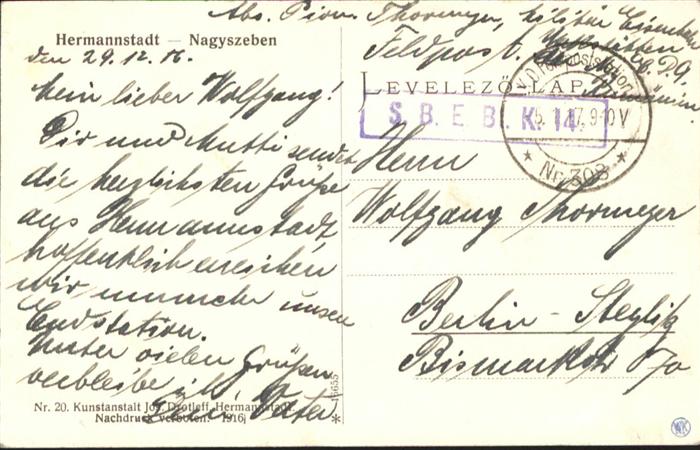 Abs. Pion. Thormeyer,
Feldpost
Hermannstadt — Nagyszeben
den 29.12.16.
LEVELEZŐ-LAP
Mein lieber Wolfgang!
S. B. E. B. K. 14.
5. 1. 17. 9-10V
* Nr. 308 *
Dir und Mutti sendet
die herzlichsten Grüße
aus Hermannstadt,
hoffentlich erreichen
wir nunmehr unsere
Endstation.
Unter vielen Grüßen
verbleibe ich
Dein Vater
Herrn
Wolfgang Thormeyer
Berlin - Steglitz
Bismarckstr 70
Nr. 20. Kunstanstalt Jos. Drotleff, Hermannstadt.
Nachdruck verboten. 1916
*
WK